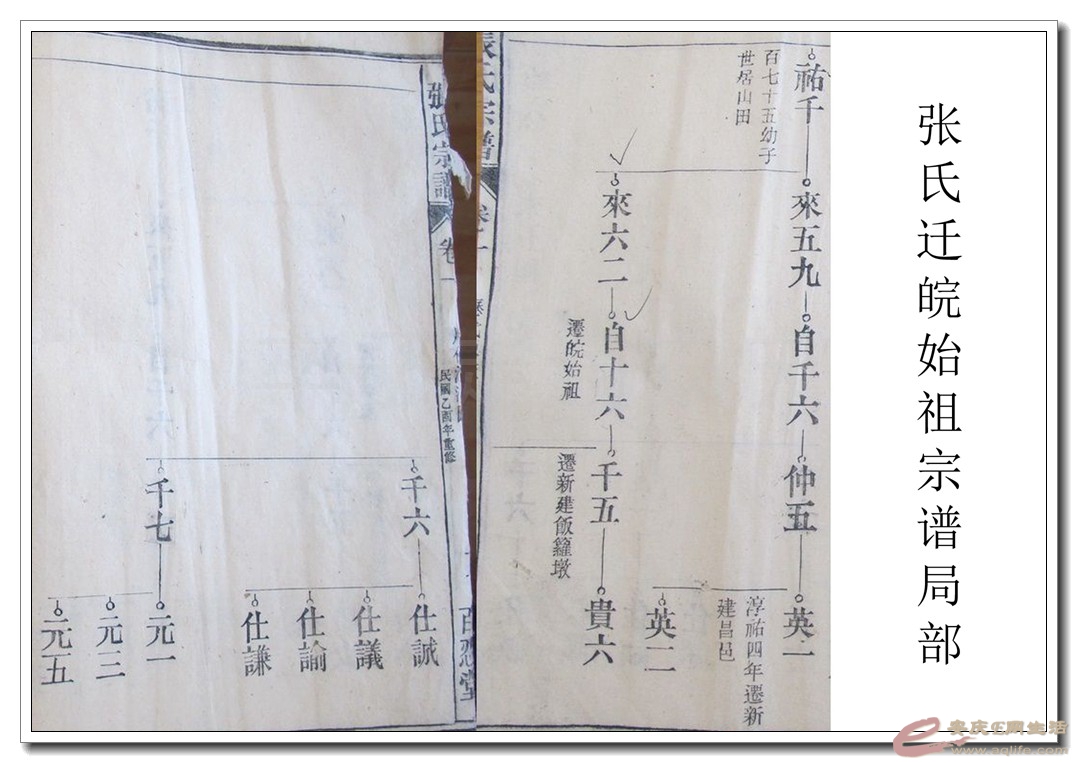 张氏迁皖始祖宗谱局部
祐千
百七十五幼子
世居山田
來五九
自千六
仲五
英一
淳祐四年遷新
建昌邑
英二
來六二
自十六
遷皖始祖
千五
遷新建飯籮墩
貴六
張氏宗譜
卷一
張氏宗譜
卷一
民國乙酉年重修
百忍堂
千六
仕誠
仕議
仕諭
仕謙
千七
元一
元三
元五
安庆E网生活
www.aqlife.com